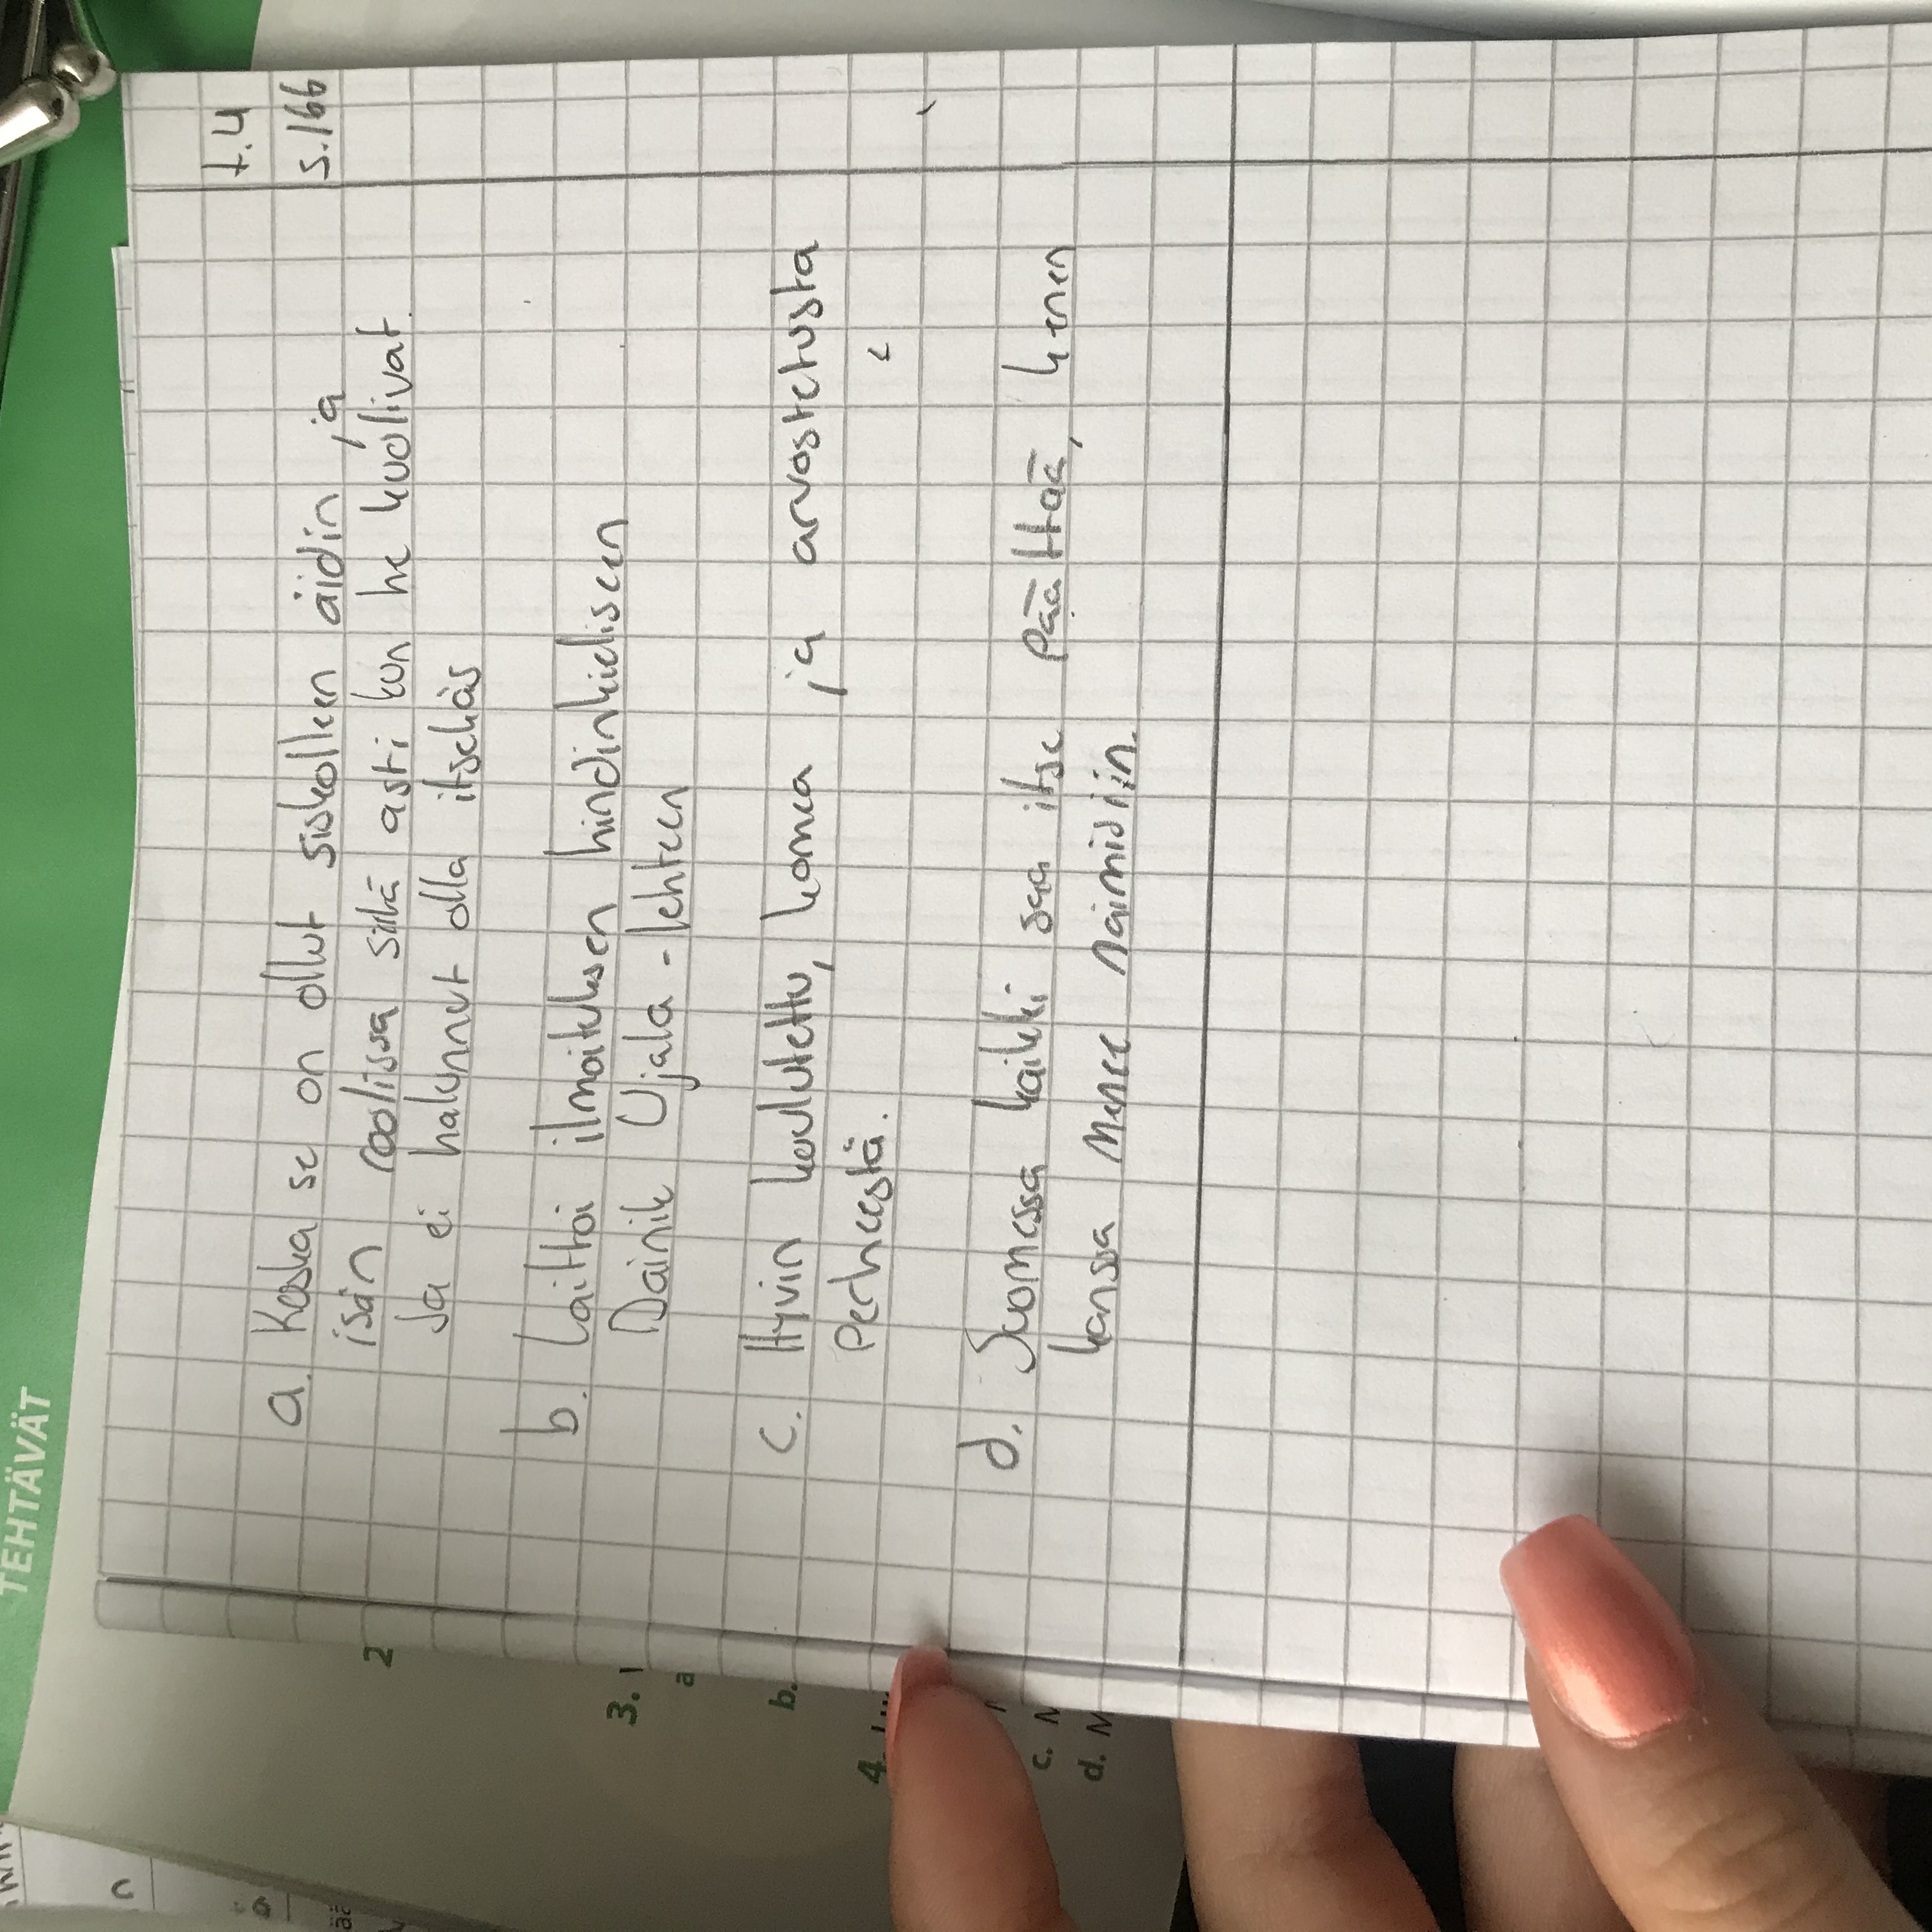 t.4
s.166
a. Koska se on ollut siskolleen äidin ja
isän roolissa siitä asti kun he kuolivat.
Ja ei halunnut olla itsekäs
b. Laittoi ilmoituksen hindinkieliseen
Dainik Ujala - lehteen
c. Hyvin koulutettu, komea ja arvostetusta
Perheestä.
d. Suomessa kaikki saa itse Päättää, kenen
kanssa menee naimisiin.
TEHTÄVÄT
2
3.
a
b.
4.
c. M
d. M